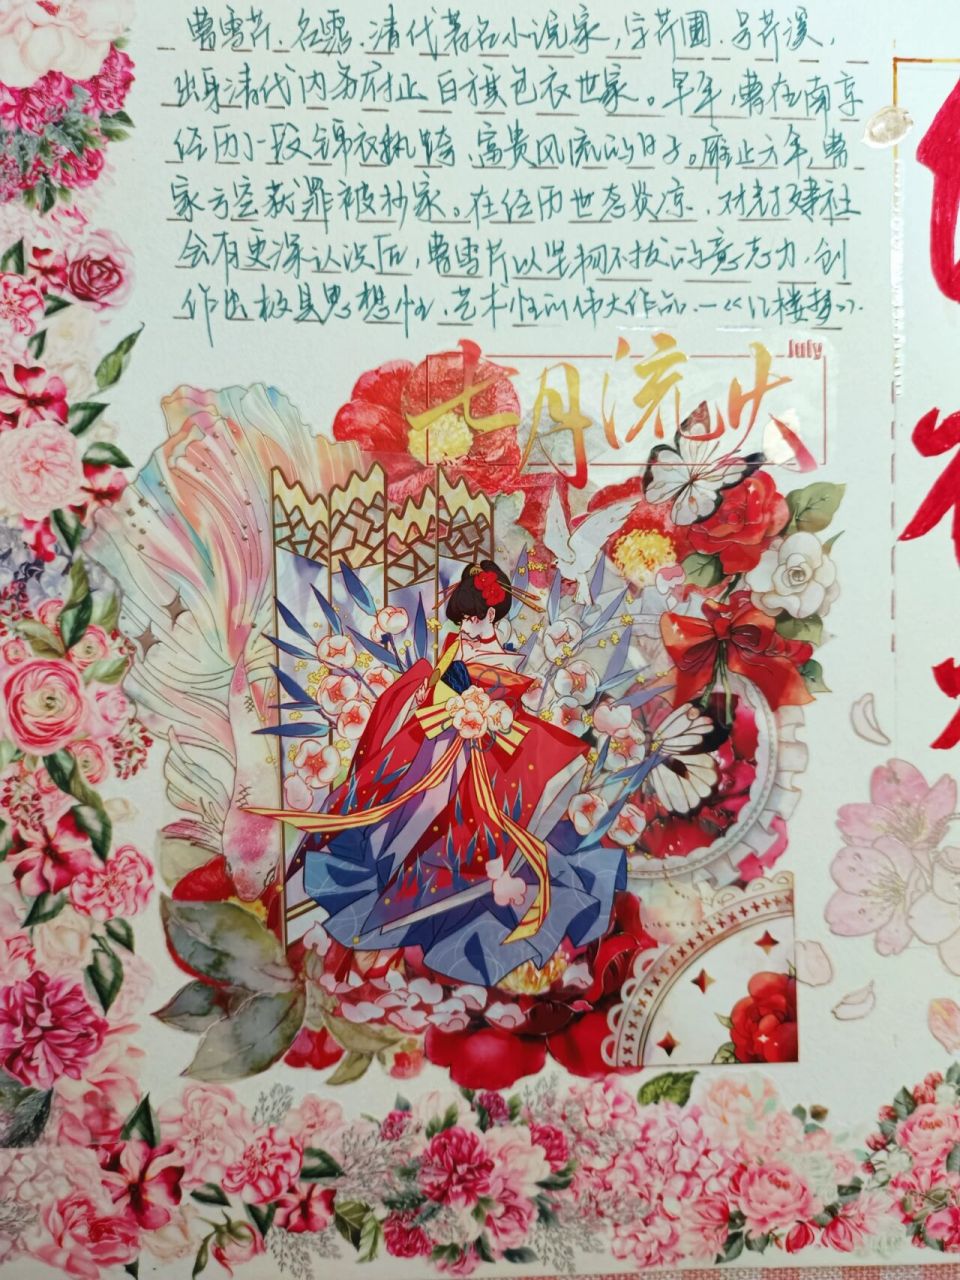 曹雪芹，名霑，清代著名小说家，字芹圃，号芹溪，
出身清代内务府正白旗包衣世家。早年，曹在南京
经历一段锦衣纨绔，富贵风流的日子。雍正六年，曹
家亏空获罪被抄家。在经历世态炎凉，对封建社
会有更深认识后，曹雪芹以坚韧不拔的意志力，创
作出极具思想性、艺术性的伟大作品—《红楼梦》.
July
七月流火